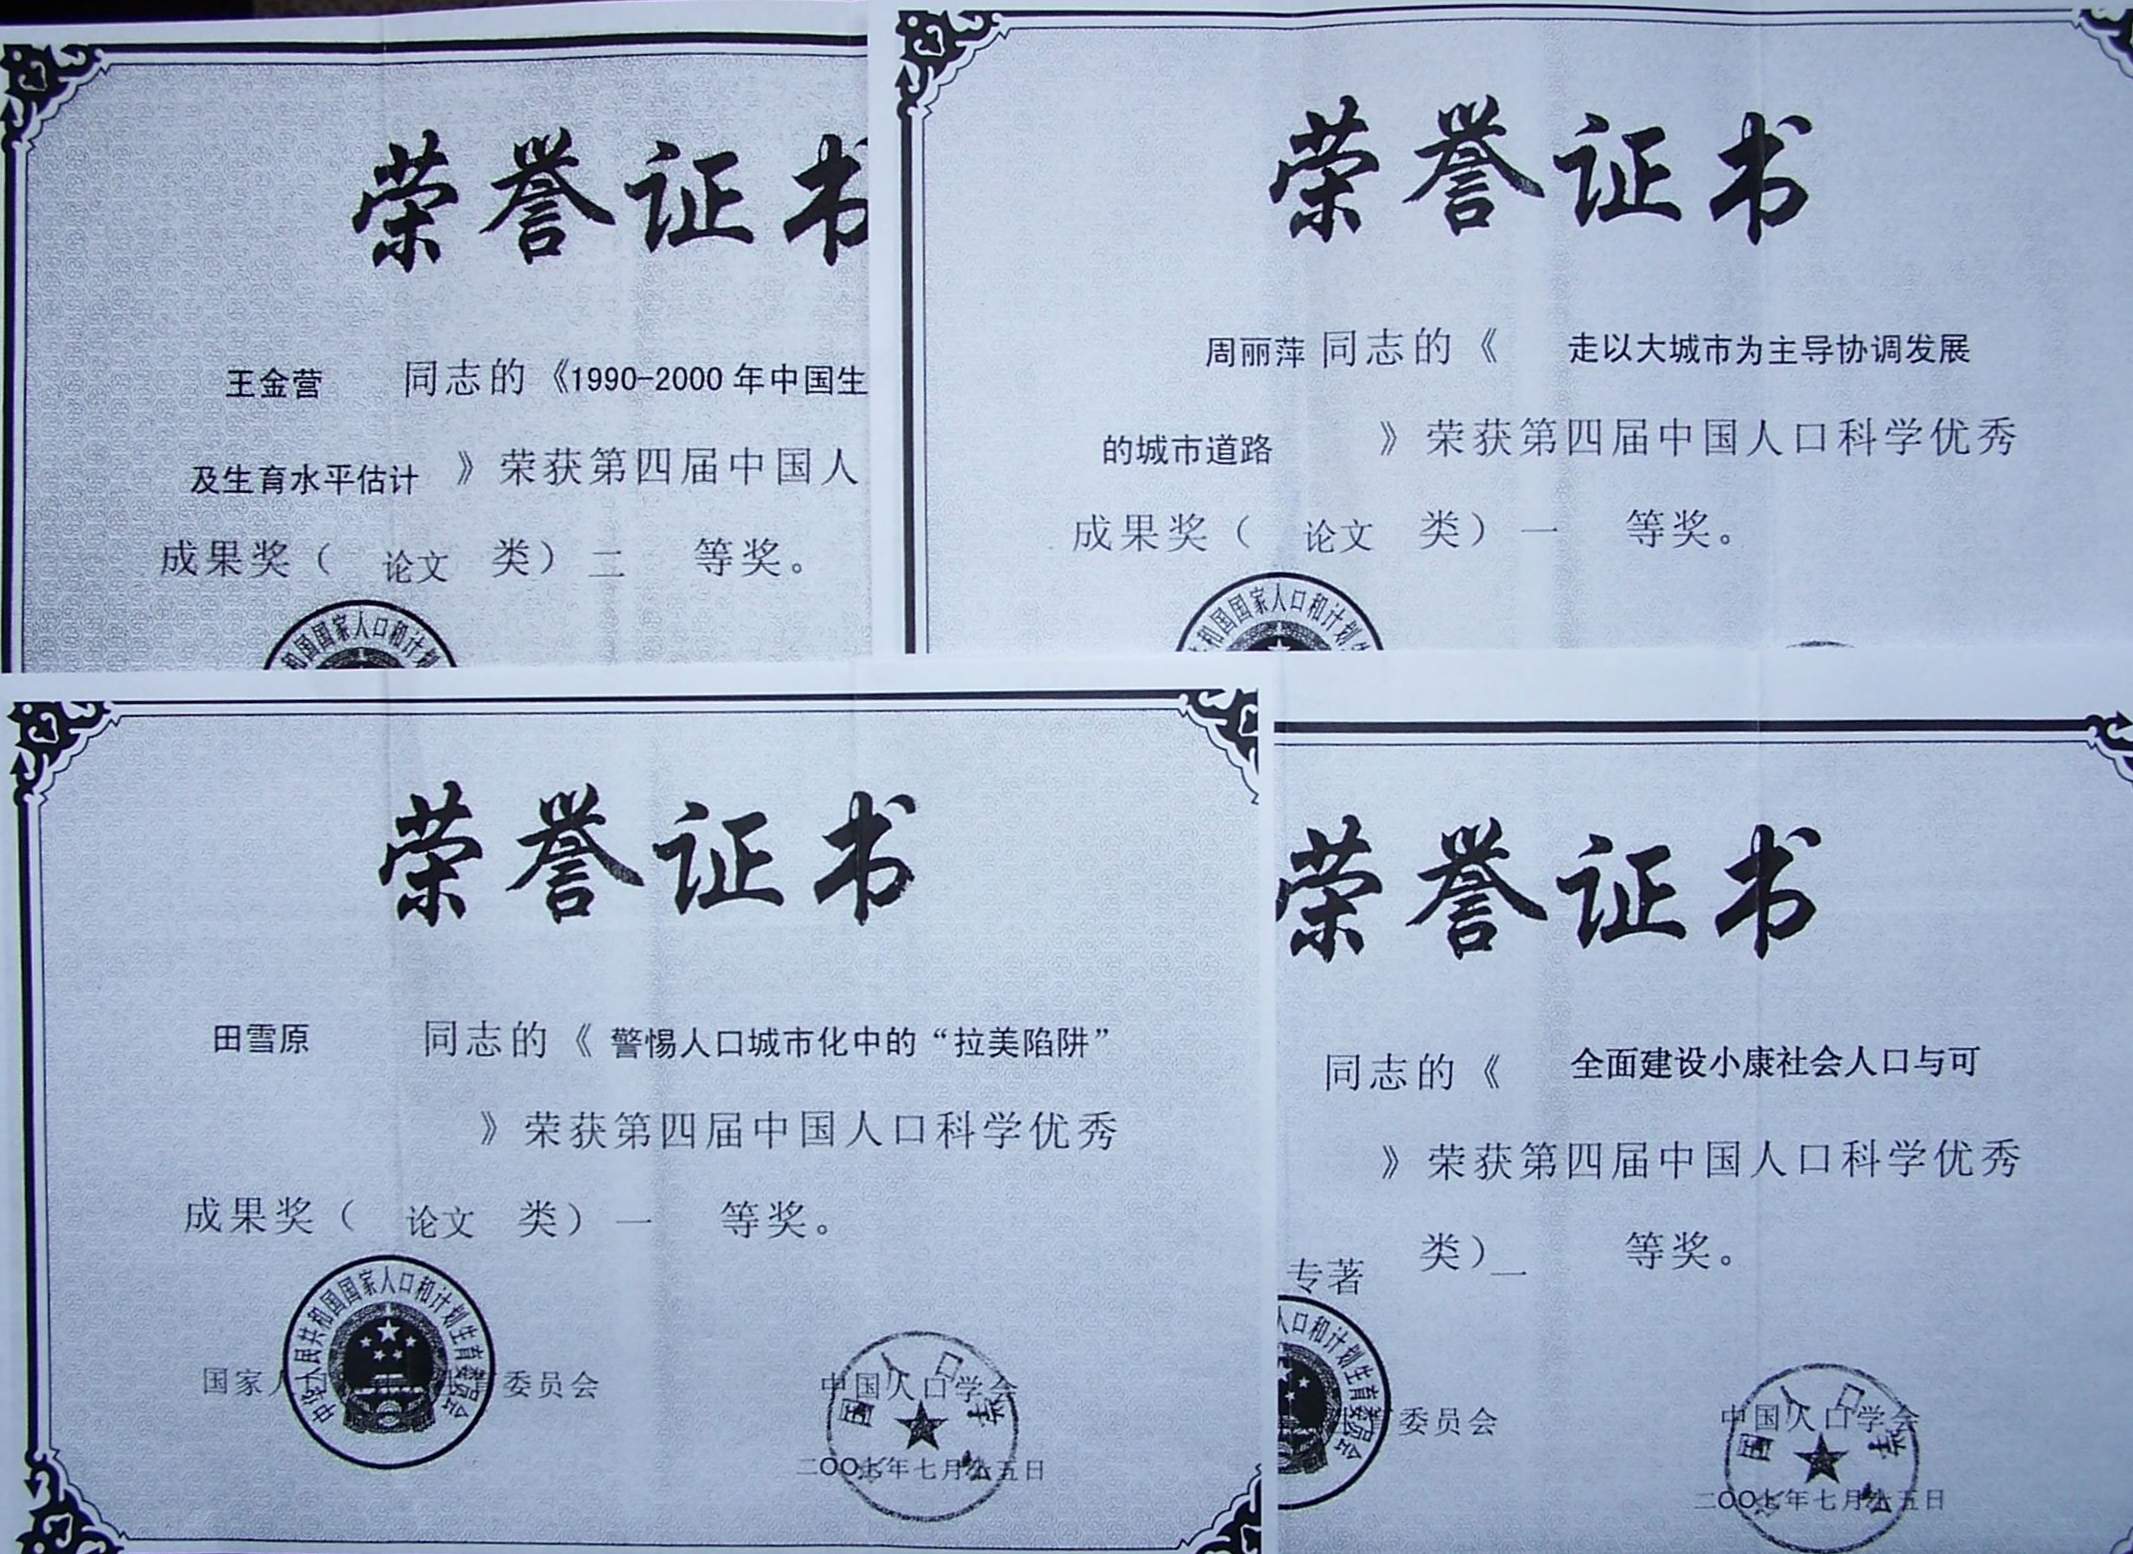 荣誉证书
王金营 同志的《1990-2000年中国生
及生育水平估计 》荣获第四届中国人
成果奖（ 论文 类）二 等奖。
和国国家人口和计划
荣誉证书
周丽萍 同志的《 走以大城市为主导协调发展
的城市道路 》荣获第四届中国人口科学优秀
成果奖（ 论文 类）一 等奖。
和国国家人口和计划生
荣誉证书
田雪原 同志的《 警惕人口城市化中的“拉美陷阱”
》荣获第四届中国人口科学优秀
成果奖（ 论文 类）一 等奖。
中华人民共和国国家人口和计划生育委员会
国家人 委员会
中国人口学会
二〇〇七年七月 五日
荣誉证书
同志的《 全面建设小康社会人口与可
》荣获第四届中国人口科学优秀
专著 类）一 等奖。
人口和计划生育委员会
委员会
中国人口学会
二〇〇七年七月 五日